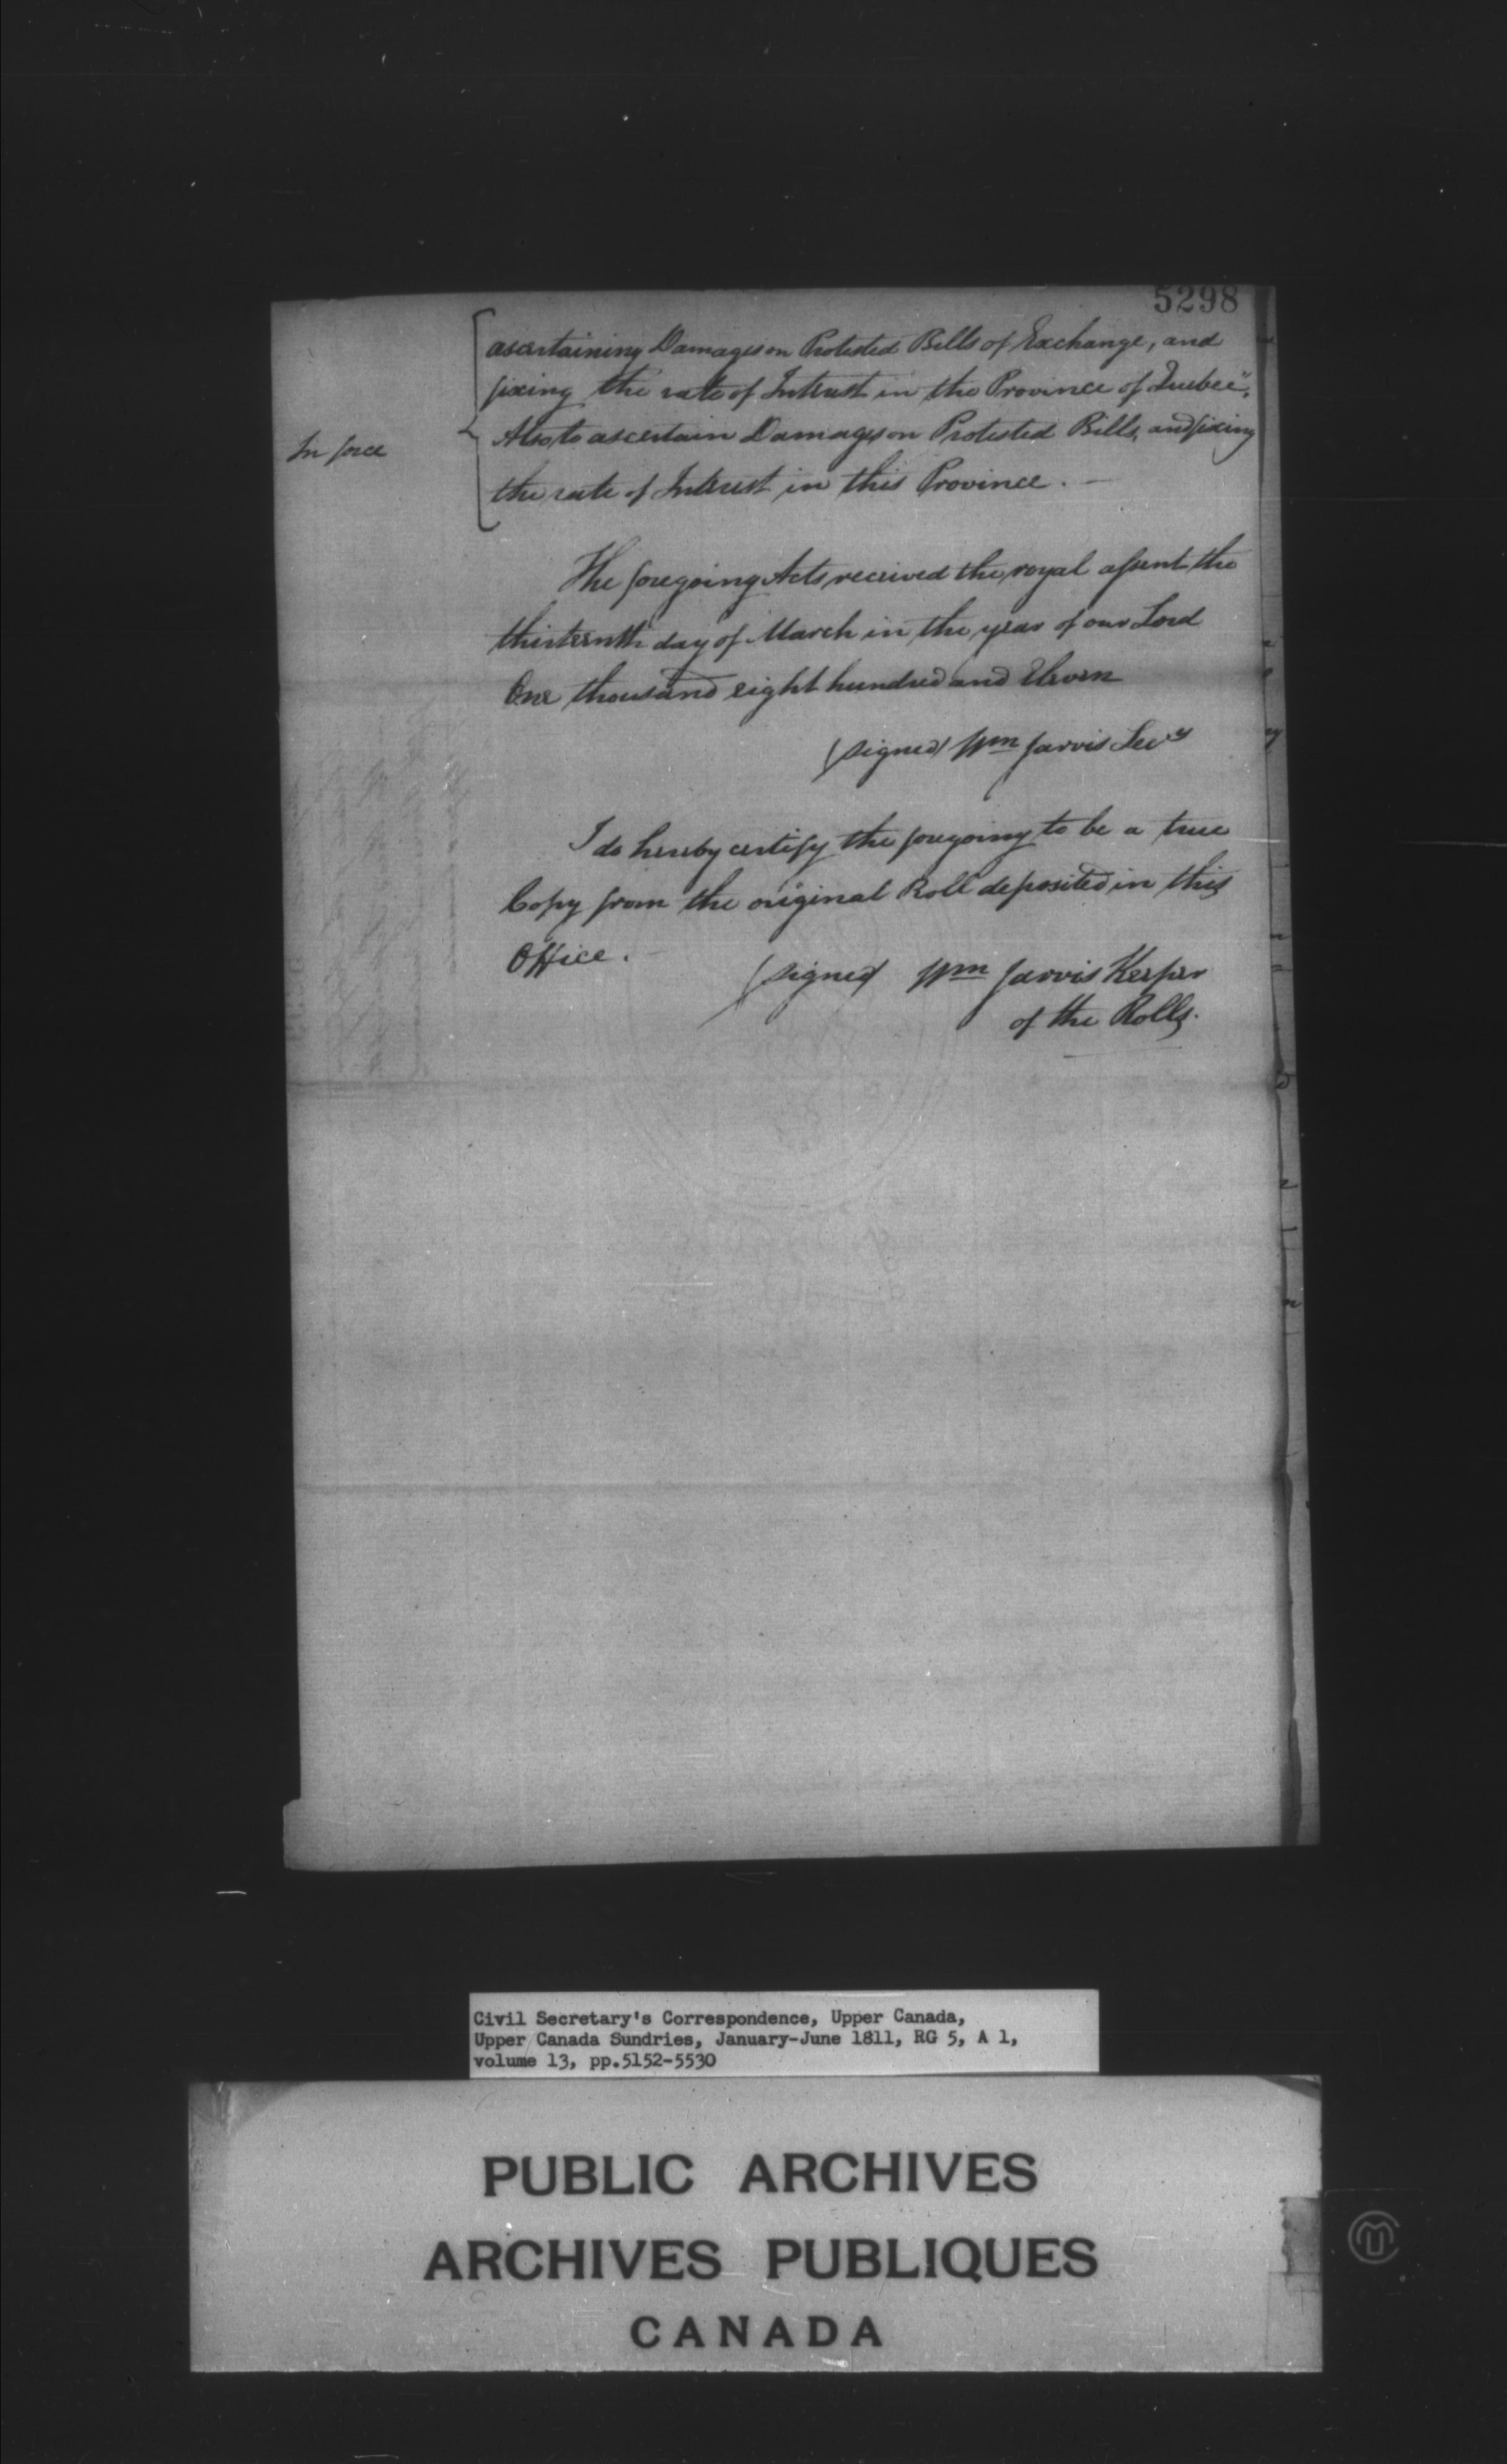 5298
ascertaining Damages on Protested Bills of Exchange, and
fixing the rate of Interest in the Province of Quebec",
Also to ascertain Damages on Protested Bills, and fixing
In force
the rate of Interest in this Province. —
The foregoing Acts received the royal assent the
thirteenth day of March in the year of our Lord
One thousand eight hundred and Eleven
(signed) Wm Jarvis Secy
I do hereby certify the foregoing to be a true
Copy from the original Roll deposited in this
Office. —
(signed Wm Jarvis Keeper
of the Rolls.
Civil Secretary's Correspondence, Upper Canada,
Upper Canada Sundries, January-June 1811, RG 5, A 1,
volume 13, pp.5152-5530
PUBLIC ARCHIVES
ARCHIVES PUBLIQUES
CANADA